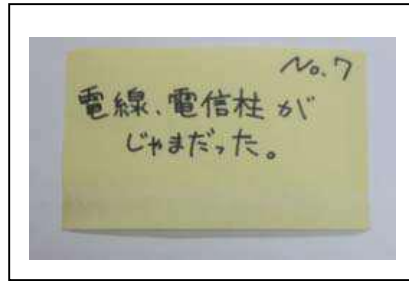 No.7
電線、電信柱が
じゃまだった。